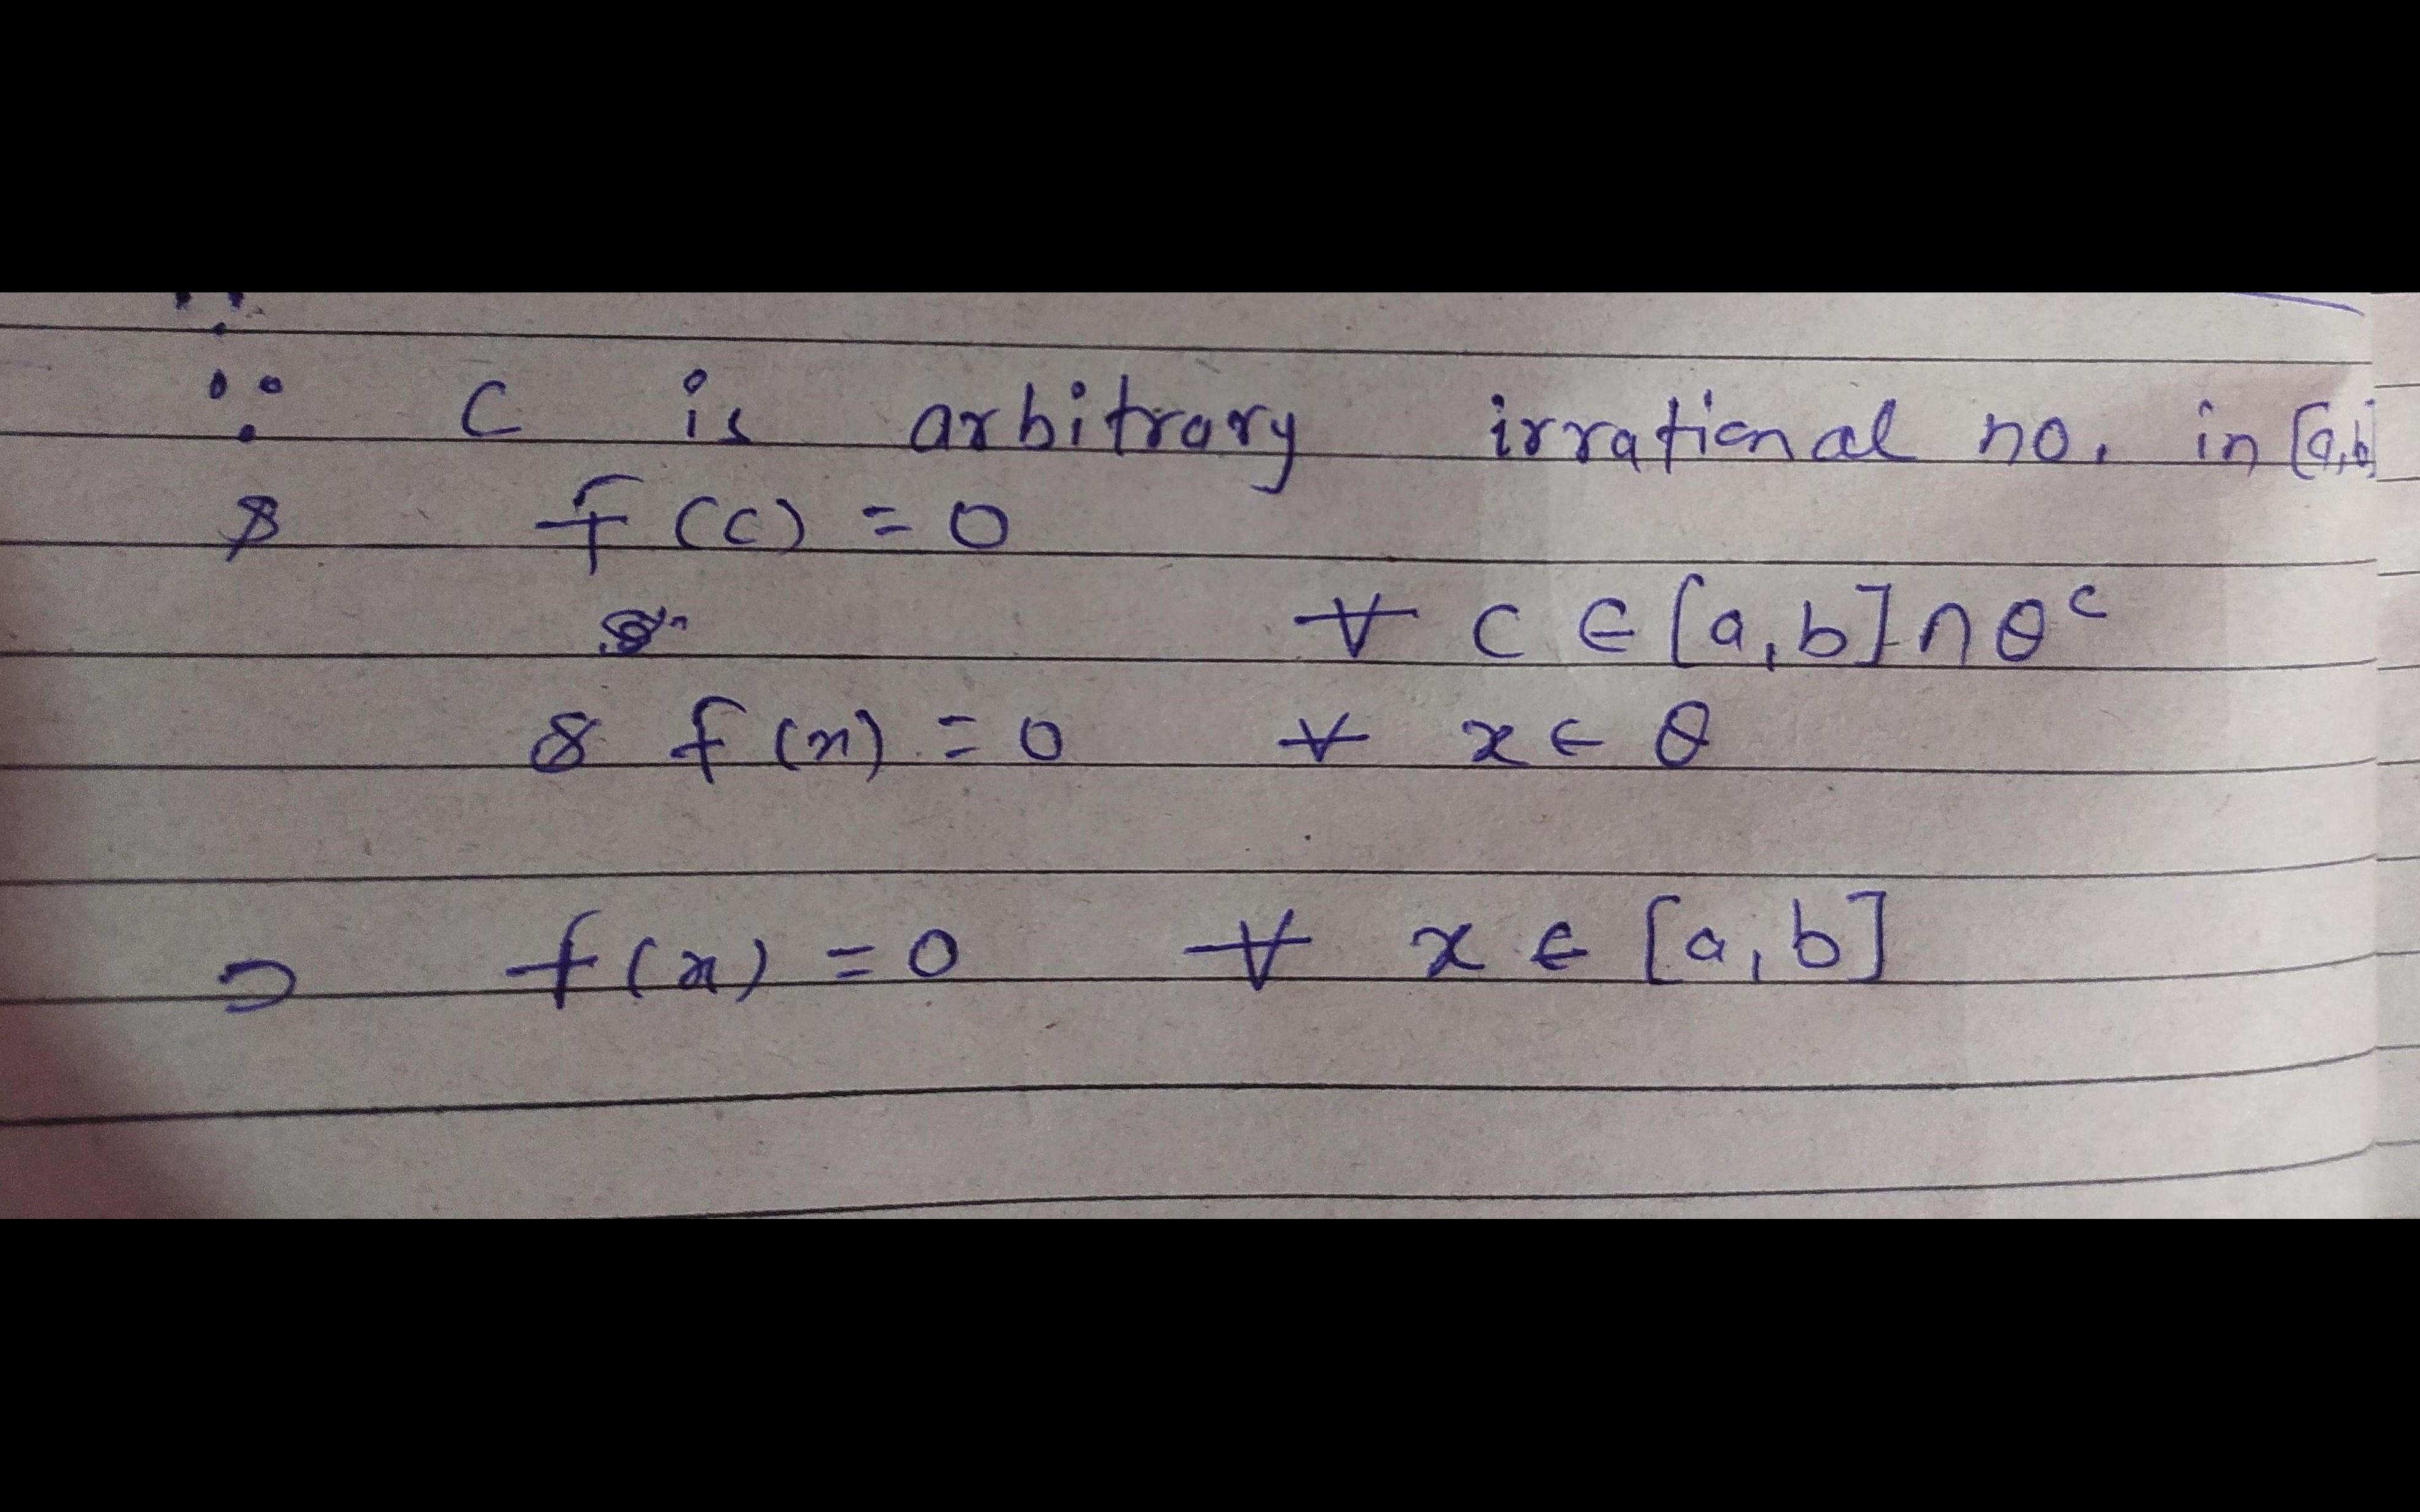 ∵ C is arbitrary irrational no. in [a,b]
& f(c) = 0
∀ C ∈ [a,b] ∩ Q^c
& f(x) = 0 ∀ x ∈ Q
⊃ f(x) = 0 ∀ x ∈ [a,b]